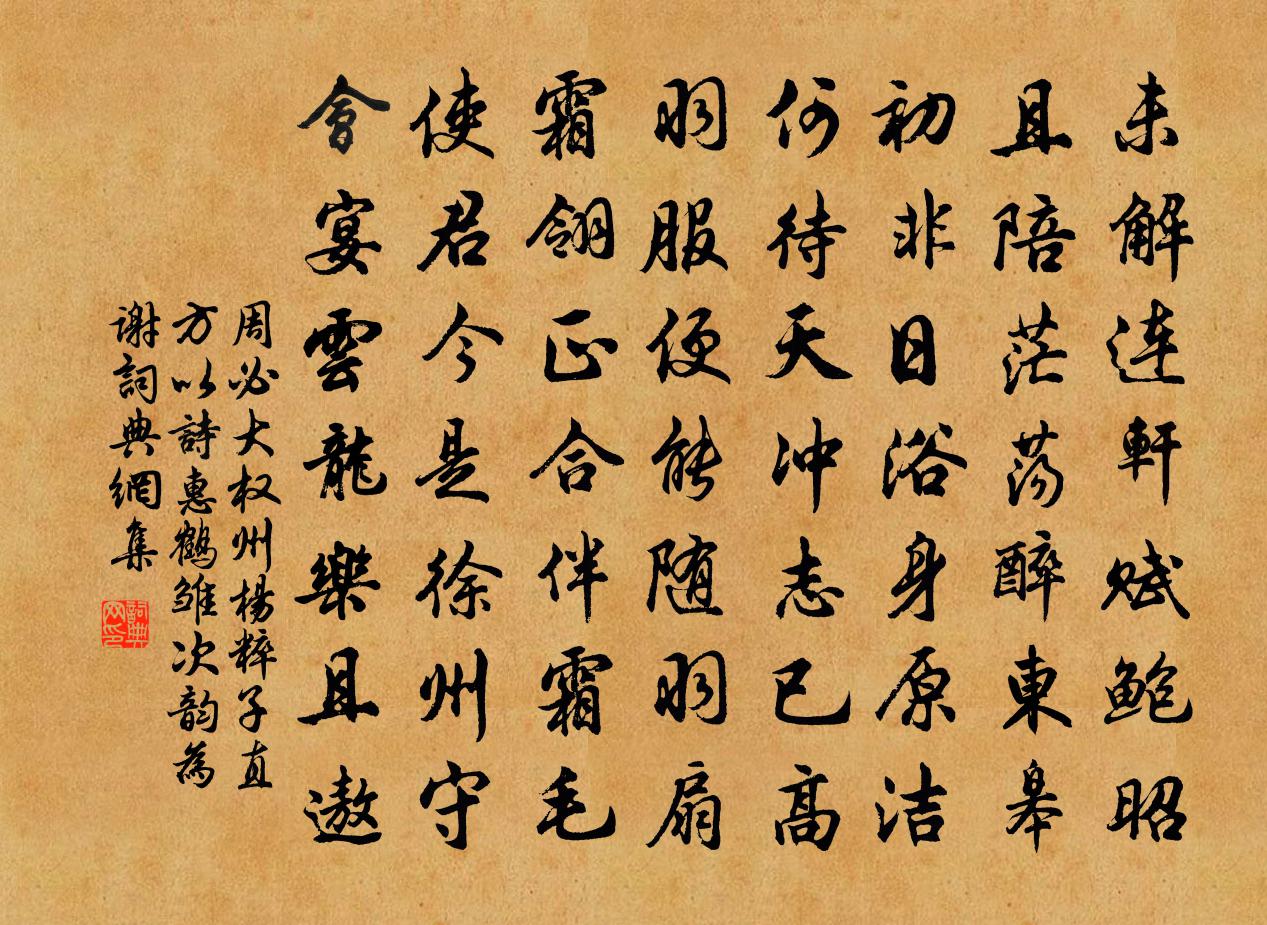 未解連軒賦鮑昭
且陪茫蕩醉東皋
初非日浴身原洁
何待天沖志已高
羽服便能随羽扇
霜翎正合伴霜毛
使君今是徐州守
會宴雲龍樂且遨
周必大权州楊粹子直
方以詩惠鶴雏次韵為
谢詞典網集
詞典网印